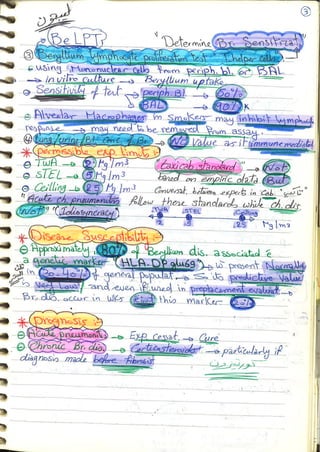 ③
BeLPT "Determine Br. Sensitivity"
③ Beryllium lymphocytic proliferation test T helper cells
• using Mononuclear cells from periph. bl. or BAL
→ In vitro culture → Beryllium uptake
⊖ Sensitivity of test → periph Bl → 50%
→ BAL → 90%
⊖ Alveolar Macrophages in Smokers may inhibit lymphocyte
response → may need to be removed from assay.
④ → No Value as it immune mediated
* permissible exp limits
⊖ TWA → 2 Mg/m3 "toxicity standard" → Not
⊖ STEL → 5 Mg/m3 based on emperic data But
⊖ Ceilling → 25 Mg/m3 Conversat. between experts in Cab
"Acute ch pneumonitis follow these standards while ch. dis
Not" "Idiosyncracy" TWA STEL Ceiling
2 5 25 Mg/m3
* Disease Susceptibility :-
⊖ Approximately 80% of Beryllium dis. associated c̄
a genetic marker HLA. DP glu69 → w present Normally
in 20-40% of general populat → So its predictive Value
is Very Low and even if used in preplacement evaluat →
Br. dis. occur in WRs c̄out this marker 20%
* Prognosis :-
⊖ Acute pneumonitis → Exp cessat. → Cure
⊖ Chronic Br. dis. → Corticosteroids → particularly if
diagnosis made before fibrosis